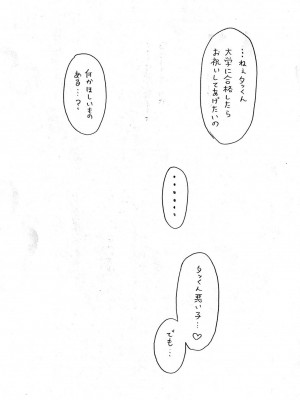 …ねぇタっくん
大学に合格したら
お祝いしてあげたいの
何かほしいもの
ある…?
••••••
タっくん悪い子…♡
でも…